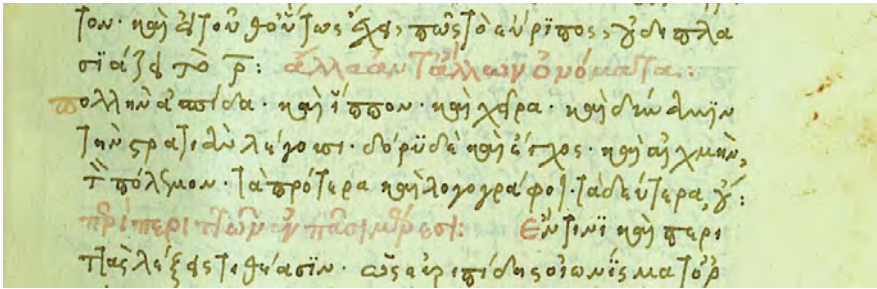 τον· καὶ τοῦθ οὕτως ἔχει, πῶς τὸ εὔρϊπος, οὐ διπλα
σϊάζει τὸ ρ̅: ἄλλα ἀντ ἄλλων ὀνόματα.:
πολλὴν ἀσπίδα· καὶ ἵππον· καὶ χεῖρα· καὶ
τὴν στρατιὰν λέγουσι· δόρϋ δὲ καὶ ἔγχος· καὶ αἰχμὴν,
τὸν πόλεμον· τὰ πρότερα καὶ λογογράφοι· τὰ δεύτερα, οὔ:
περὶ περιττῶν ἐν πᾶσι μέρεσι: Ἐν τισῒ καὶ περι
ττὰς λέξεις τιθέασϊν· ὡς εὐριπίδης οἰωνίσματ ὀρ